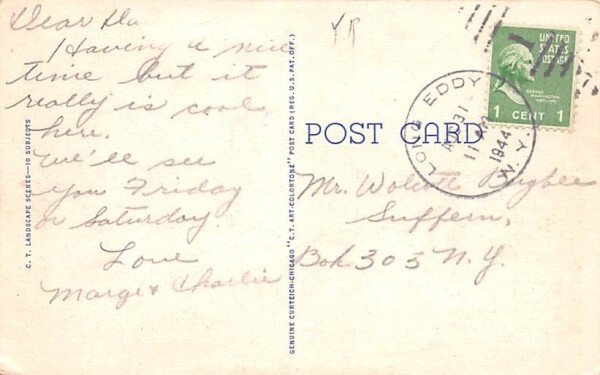 Dear Da
Having a nice
time but it
really is cool
here.
We'll see
you Friday
or Saturday.
Love
Marge & Charlie
C. T. LANDSCAPE SCENES—10 SUBJECTS
GENUINE CURTEICH-CHICAGO "C. T. ART-COLORTONE" POST CARD (REG. U.S. PAT. OFF.)
POST CARD
LONG EDDY
31
11 AM
1944
N.Y.
UNITED
STATES
POSTAGE
GEORGE
WASHINGTON
1 CENT 1
Mr. Wolcott Bugbee
Suffern,
Box 303 N.Y.